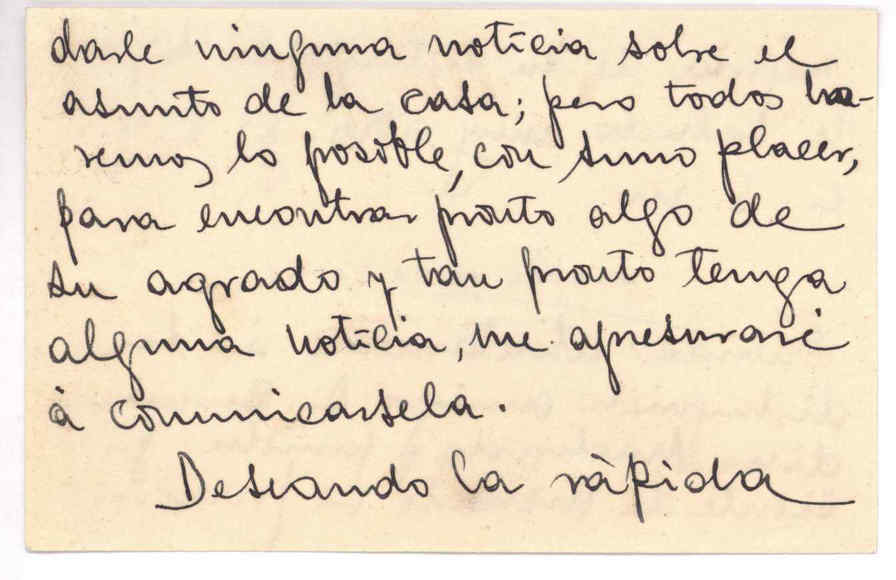 darle ninguna notícia sobre el
asunto de la casa; pero todos ha-
remos lo posible, con sumo placer,
para encontrar pronto algo de
su agrado y tan pronto tenga
alguna notícia, me apresuraré
à comunicarsela.
Deseando la ràpida